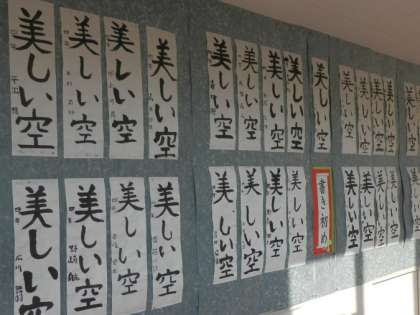 美しい空
美しい空
美しい空
美しい空
美しい空
美しい空
美しい空
美しい空
美しい空
美しい空
美しい空
美しい空
美しい空
美しい空
美しい空
美しい空
美しい空
美しい空
美しい空
美しい空
美しい空
美しい空
書き初め
美しい空
美しい空
美しい空
美しい空
美しい空